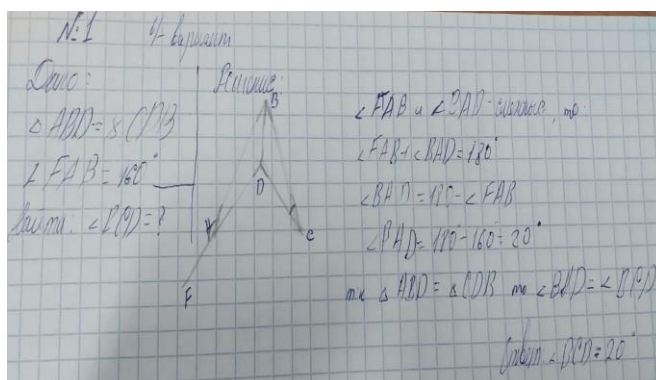 №1 4-вариант
Дано:
△ABD = △CDB
∠FAB = 160°
Найти: ∠BCD = ?
Решение:
B
D
A
C
F
∠FAB и ∠BAD - смежные, то
∠FAB + ∠BAD = 180°
∠BAD = 180 - ∠FAB
∠BAD = 180° - 160° = 20°
т.к △ABD = △CDB то ∠BAD = ∠BCD
Ответ: ∠BCD = 20°